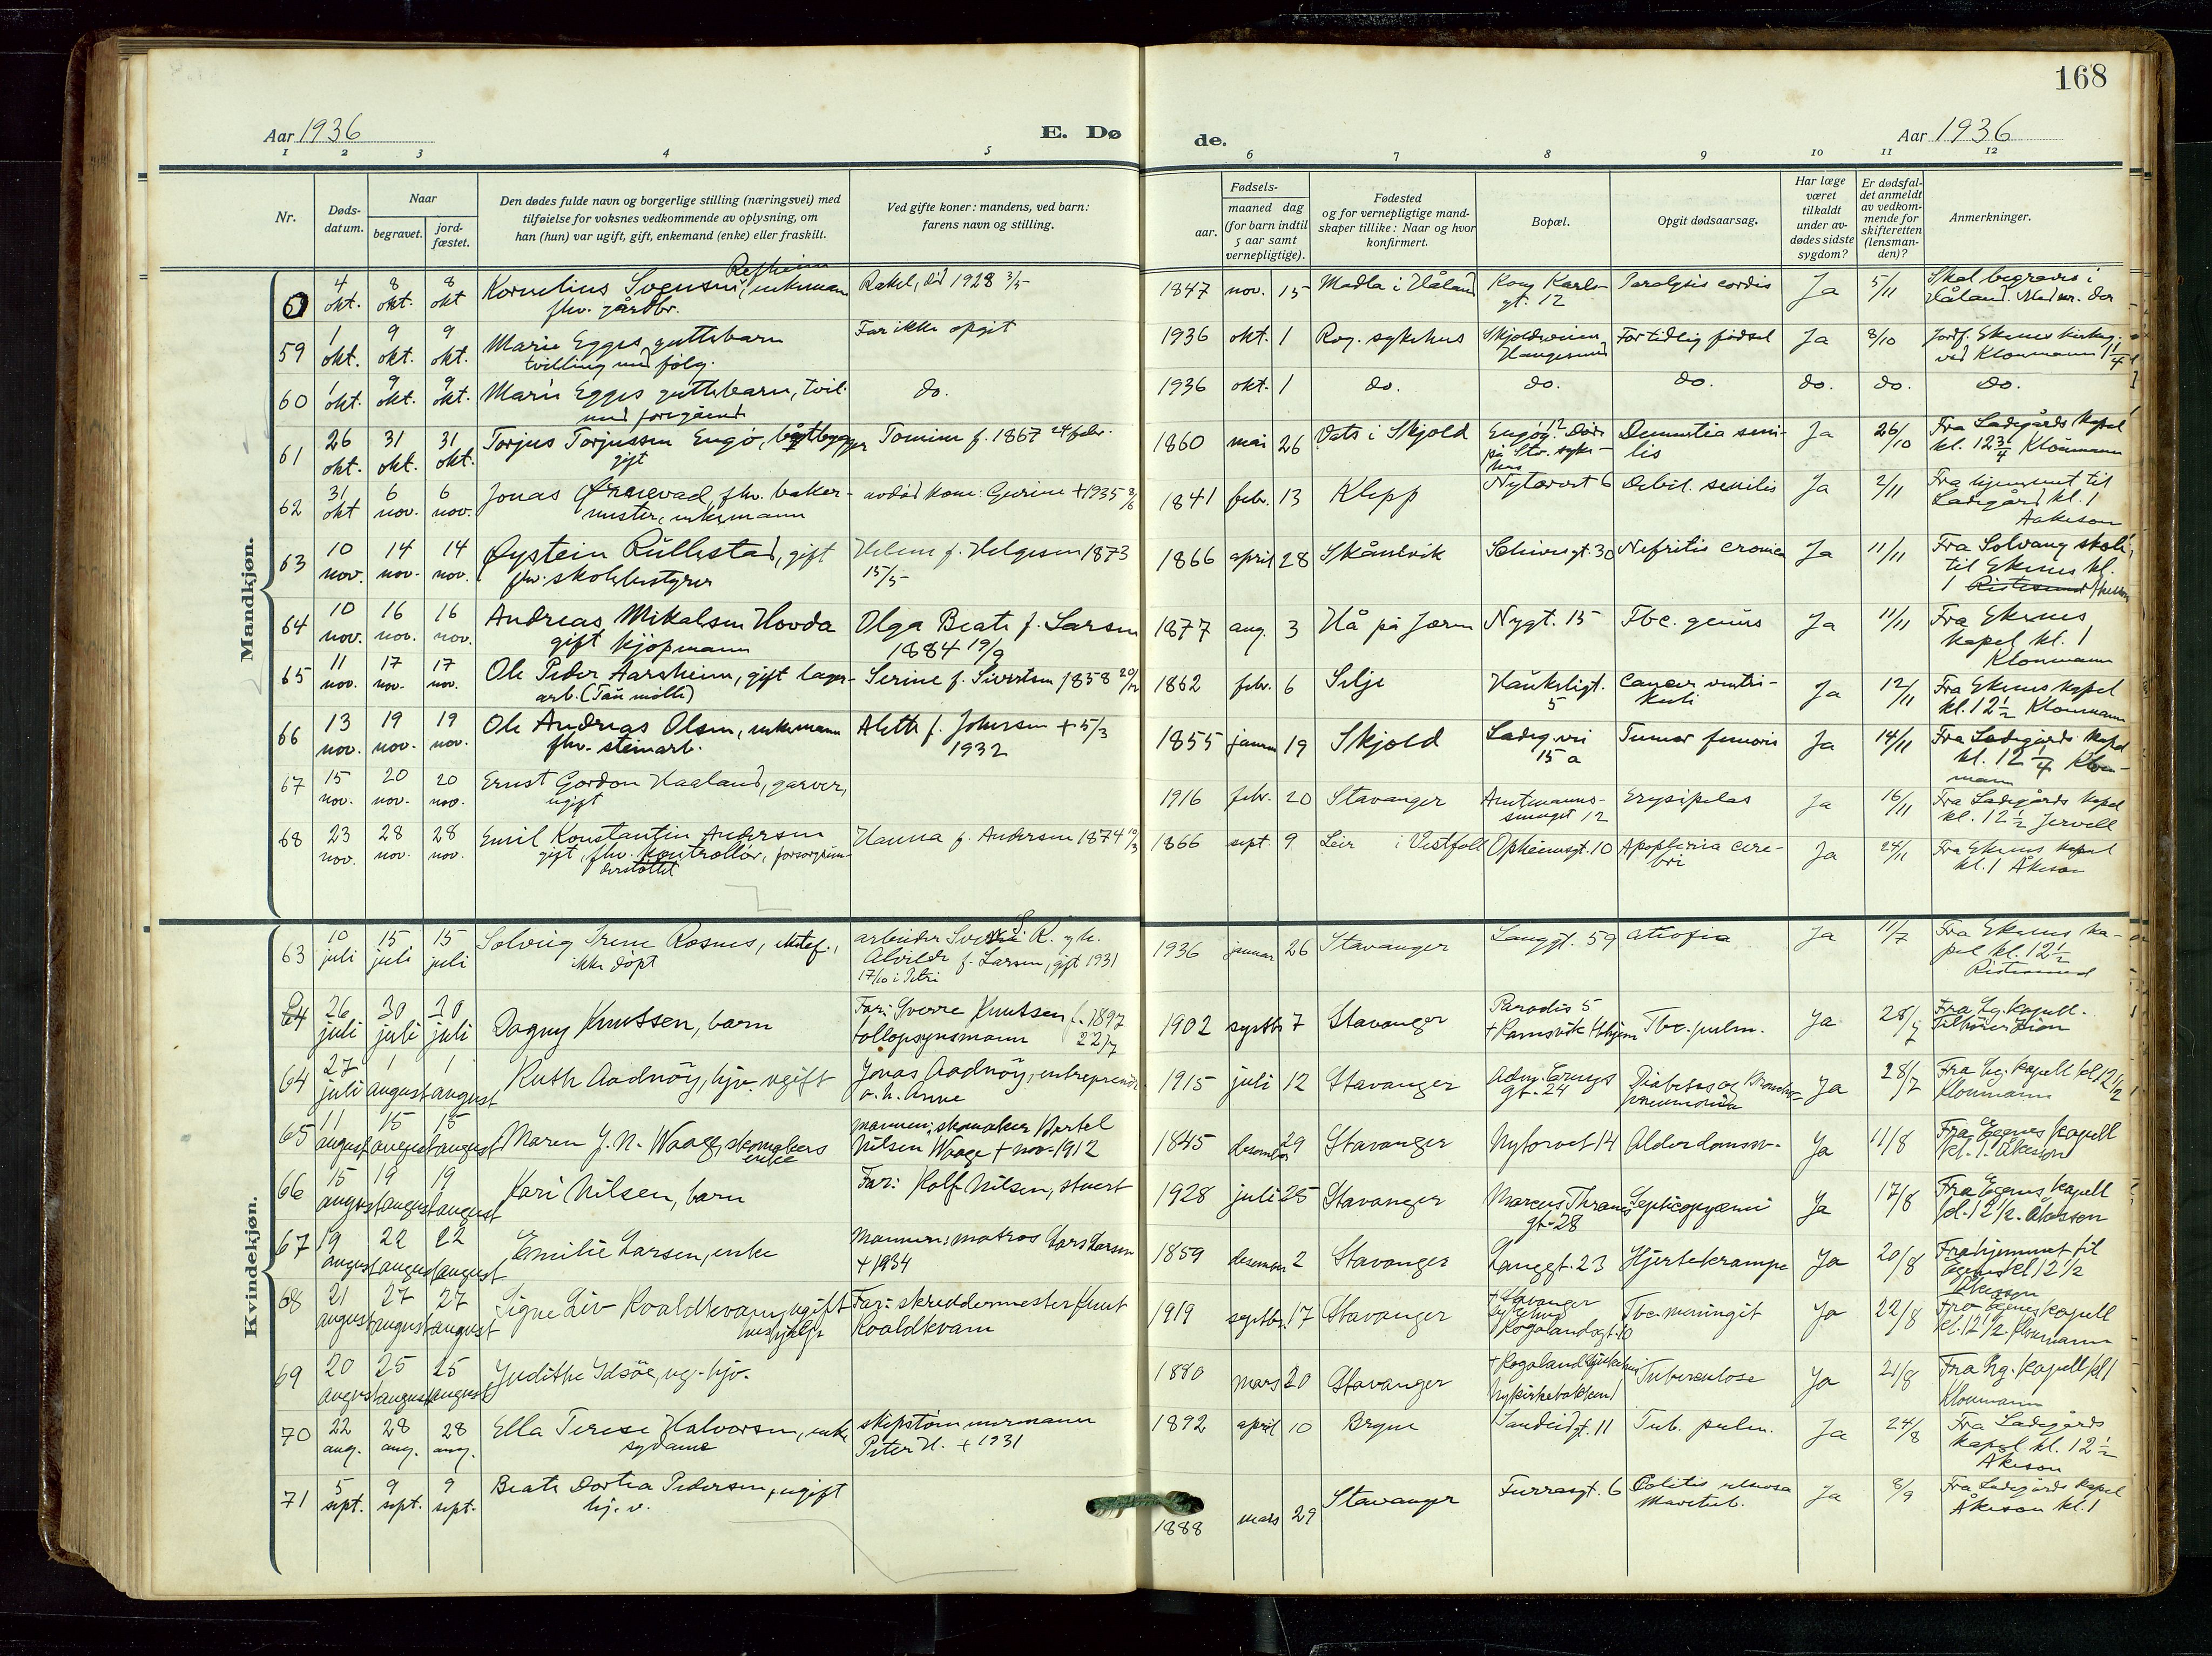 168
Aar 1936
E. Dø
de.
Aar 1936
1 2 3 4 5 6 7 8 9 10 11 12
Nr.
Døds-
datum.
Naar
begravet.
jord-
fæstet.
Den dødes fulde navn og borgerlige stilling (næringsvei) med
tilføielse for voksnes vedkommende av oplysning, om
han (hun) var ugift, gift, enkemand (enke) eller fraskilt.
Ved gifte koner: mandens, ved barn:
farens navn og stilling.
Fødsels-
aar.
maaned dag
(for barn indtil
5 aar samt
vernepligtige).
Fødested
og for vernepligtige mand-
skaper tillike: Naar og hvor
konfirmert.
Bopæl.
Opgit dødsaarsag.
Har læge
været
tilkaldt
under av-
dødes sidste
sygdom?
Er dødsfal-
det anmeldt
av vedkom-
mende for
skifteretten
(lensman-
den)?
Anmerkninger.
Mandkjøn.
4 okt. 8 okt. 8 okt Kornelius enkemann
fhv. gårdbr. Rakel, død 1928 3/5 1847 nov. 15 Madla i Håland Kong Karls-
gt. 12 Paralysis cordis Ja 5/11 Skal begraves i
Håland. der
59 1 okt. 9 okt. 9 okt. Marie Egges guttebarn
tvilling med følg. Far ikke opgit 1936 okt. 1 Rog. sykehus Skjoldveien
Haugesund For tidlig fødsel Ja 8/10 Jordf. Ekenes
ved Kloumann
60 1 okt. 9 okt. 9 okt. Marie Egges guttebarn, tvil.
med foregående do. 1936 okt. 1 do. do. do. do. do. do.
61 26 okt. 31 okt. 31 okt. Torjus Torjussen Engø, båtbygger
gift Tomine f. 1867 24 febr. 1860 mai 26 Vats i Skjold Engøg. 12 Døde
på Stv. syke-
hus Dementia seni-
lis Ja 26/10 Fra Ladegårds kapel
kl. 12 3/4 Kloumann
62 31 okt 6 nov. 6 nov. Jonas fhv. baker-
mester, enkemann avdød kone: Gurine +1935 1841 febr. 13 Klepp Nytorvet 6 Debil. senilis Ja 2/11 Fra hjemmet til
Ladegård kl. 1
Aakeson
63 10 nov. 14 nov. 14 nov. Øystein Rullestad, gift
fhv. skolebestyrer Helene f. Helgesen 1873
15/5 1866 april 28 Skånevik 30 Nefritis cronica Ja 11/11 Fra Solvang skole,
til Ekenes kl.
1
64 10 nov. 16 nov. 16 nov. Andreas Mikalsen Hovda
gift kjøpmann Olga Beate f. Larsen
1884 19/9 1877 aug. 3 Hå på Jæren Nygt. 15 Tbc. genus Ja 11/11 Fra Ekenes
kapel kl. 1
Kloumann
65 11 nov. 17 nov. 17 nov. Ole Peder Aarsheim, gift lager-
arb. (Tau mølle) Serine f. Sivertsen 1858 1862 febr. 6 Selje Haukeligt.
5 Cancer ventri-
kuli Ja 12/11 Fra Ekenes kapel
kl. 12 1/2 Kloumann
66 13 nov. 19 nov. 19 nov. Ole Andreas Olsen, enkemann
fhv. steinarb. Alette f. Johnsen + 5/3
1932 1855 januar 19 Skjold Ladeg.vei
15 a Tumor femoris Ja 14/11 Fra Ladegårds kapel
kl. 12 1/4 Klou-
mann
67 15 nov. 20 nov. 20 nov. Ernst Gordon Haaland, garver,
ugift 1916 febr. 20 Stavanger Amtmanns-
smuget 12 Erysipelas Ja 16/11 Fra Ladegårds kapel
kl. 12 1/2 Jervell
68 23 nov. 28 nov. 28 nov. Emil Konstantin Andersen
gift, fhv. kontrollør, Hanna f. Andersen 1874 1866 sept. 9 i Vestfold Opheimsgt. 10 Apopleksia cere-
bri Ja 24/11 Fra Ekenes kapel
kl. 1 Åkeson
Kvindekjøn.
63 10 juli 15 juli 15 juli Solveig Irene Rosnes,
ikke døpt arbeider R. og h.
Alvilde f. Larsen, gift 1931
17/10 i Petri 1936 januar 26 Stavanger Langgt. 59 atrofia Ja 11/7 Fra Ekenes ka-
pel kl. 12 1/2
64 26 juli 30 juli 30 juli Dagny Knutsen, barn Far: Sverre Knutsen f. 1897
tollopsynsmann 22/7 1902 septbr 7 Stavanger Paradis 5
Tbc. pulm. Ja 28/7 Fra Lg. kapell.
Tilhører Zion
64 27 juli 1 august 1 august Ruth Aadnøy, hjv. ugift Jonas Aadnøy, entreprenør
o. h. Anne 1915 juli 12 Stavanger
gt. 24 Diabetes og Broncho-
pneumonia Ja 28/7 Fra Lg. kapell kl 12 1/2
Kloumann
65 11 august 15 august 15 august Maren J. N. Waage, skomakers
enke mannen: skomaker Bertel
Nilsen Waage + nov. 1912 1845 desember 29 Stavanger Nytorvet 14 Alderdomssv. Ja 11/8 Fra Egenes kapell
kl. 1. Åkesson
66 15 august 19 august 19 august Kari Nilsen, barn Far: Rolf Nilsen, stuert 1928 juli 25 Stavanger Marcus Thranes
gt. 28 Septicopyæmi Ja 17/8 Fra Egenes kapell
kl. 12 1/2. Åkesson
67 19 august 22 august 22 august Emilie Larsen, enke Mannen: matros Lars Larsen
+ 1934 1859 desember 2 Stavanger Langgt. 23 Hjertekrampe Ja 20/8 Fra hjemmet til
Egenes kl 12 1/2
Åkesson
68 21 august 27 august 27 august Signe Liv Roaldkvam, ugift
hushjelp Far: skreddermester Knut
Roaldkvam 1919 septbr. 17 Stavanger + Stavanger
sykehus
Rogalandsgt. 10 Tbc-meningit Ja 22/8 Fra Egenes kapell
kl. 12 1/2. Kloumann
69 20 august 25 august 25 august Judithe Idsøe, ug. hjv. 1880 mars 20 Stavanger + Rogaland sykehus
Tuberculose Ja 21/8 Fra Lg. kapell kl 1
Kloumann
70 22 aug. 28 aug. 28 aug. Ella Terese Halvorsen, enke
sydame skipstømmermann
Peter H. + 1931 1892 april 10 Bryne Sandeidgt. 11 Tub. pulm. Ja 24/8 Fra Ladegårds
kapel kl. 12 1/2
Åkeson
71 5 sept. 9 sept. 9 sept. Beate Dortea Pedersen, ugift
hj. v. 1888 mars 29 Stavanger Furrasgt. 6 Colitis ulcerosa
Ja 8/9 Fra Ladegårds kapel
Åkeson kl. 1